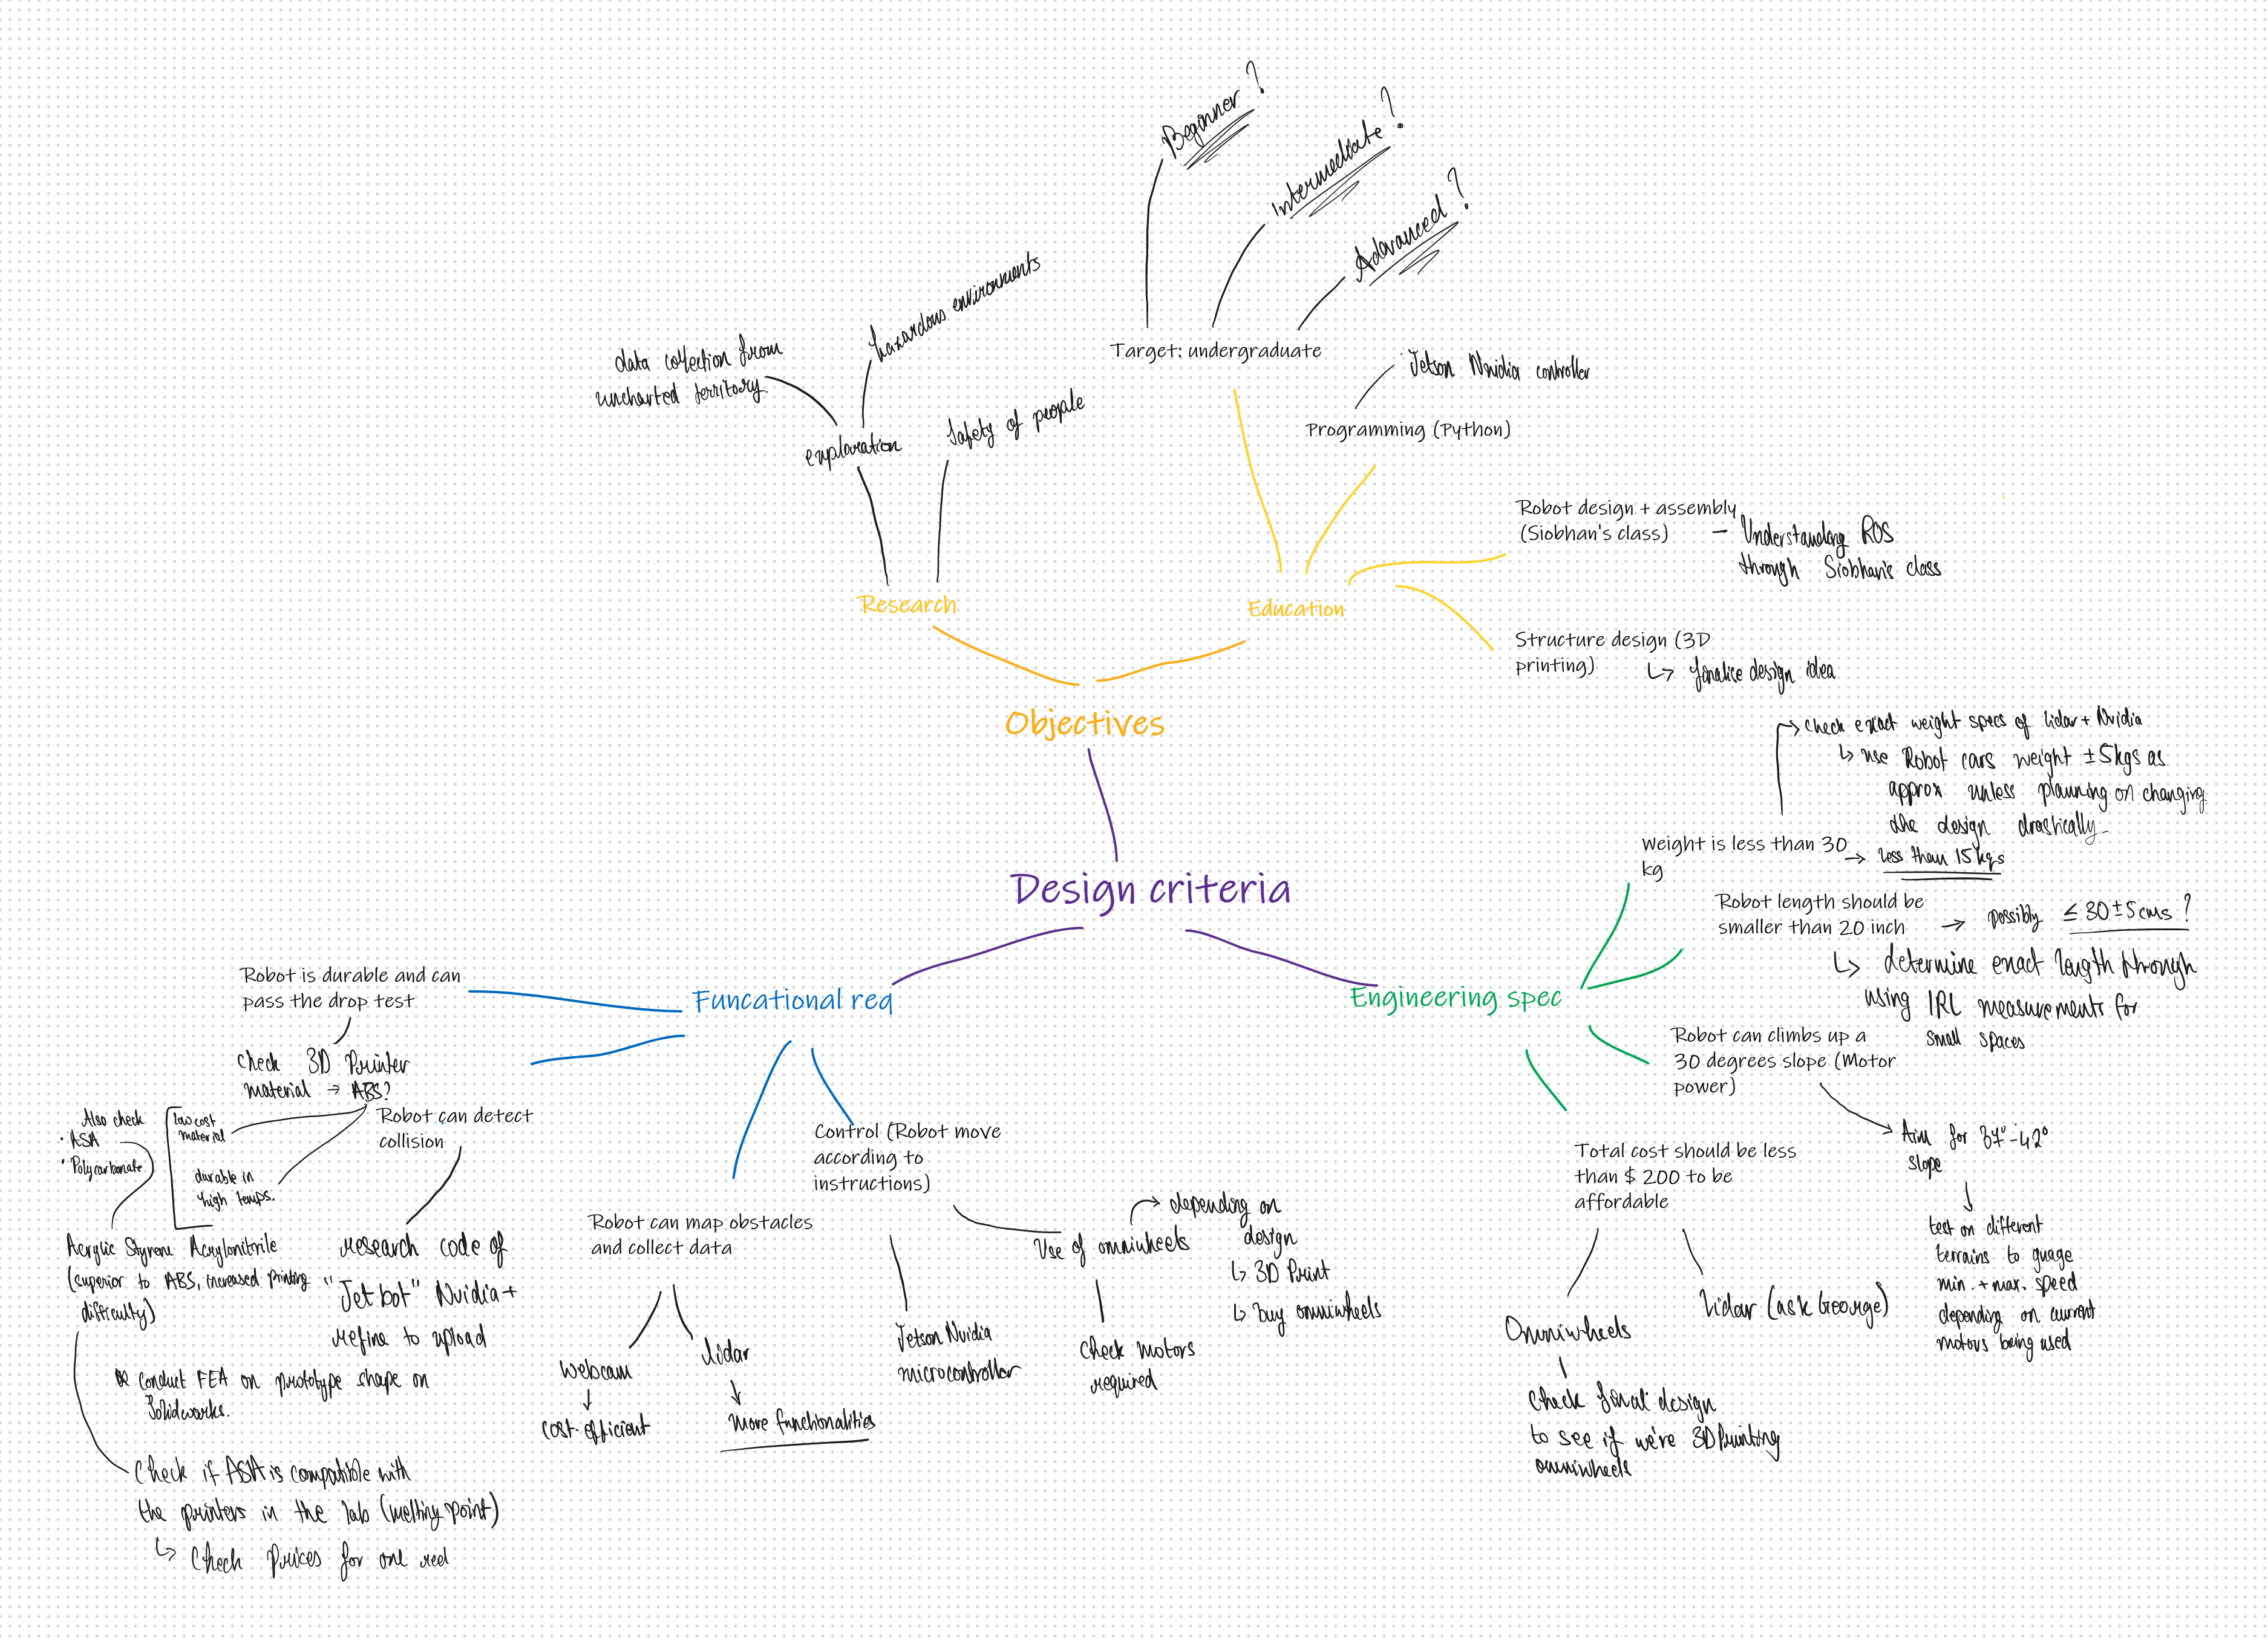 Beginner ?
Intermediate ?
Advanced ?
Target: undergraduate
hazardous environments
data collection from
uncharted territory.
exploration
Safety of people
Research
Jetson Nvidia controller
Programming (Python)
Robot design + assembly
(Siobhan's class)
- Understanding ROS
through Siobhan's class
Education
Structure design (3D
printing)
↳ finalise design idea
Objectives
Design criteria
Engineering spec
→ check exact weight specs of lidar + Nvidia
↳ use Robot cars weight ±5kgs as
approx unless planning on changing
the design drastically
Weight is less than 30
kg
→ less than 15 kgs
Robot length should be
smaller than 20 inch
→ possibly ≤ 30 ± 5 cms ?
↳ determine exact length through
using IRL measurements for
small spaces
Robot can climbs up a
30 degrees slope (Motor
power)
Aim for 37°-42°
slope
test on different
terrains to guage
min. + max. speed
depending on current
motors being used
Total cost should be less
than $ 200 to be
affordable
Omniwheels
Check final design
to see if we're 3D Printing
omniwheels
Lidar (ask George)
Funcational req
Robot is durable and can
pass the drop test
Check 3D Printer
material → ABS?
low cost
material
durable in
high temps.
Also check
• ASA
• Polycarbonate
Acrylic Styrene Acrylonitrile
(superior to ABS, increased printing
difficulty)
conduct FEA on prototype shape on
Solidworks.
Check if ASA is compatible with
the printers in the lab (melting point)
↳ Check prices for one reel
Robot can detect
collision
research code of
"Jetbot" Nvidia +
refine to upload
Robot can map obstacles
and collect data
webcam
↓
cost-efficient
Lidar
↓
More functionalities
Control (Robot move
according to
instructions)
Jetson Nvidia
microcontroller
Use of omniwheels
→ depending on
design
↳ 3D Print
↳ buy omniwheels
Check motors
required